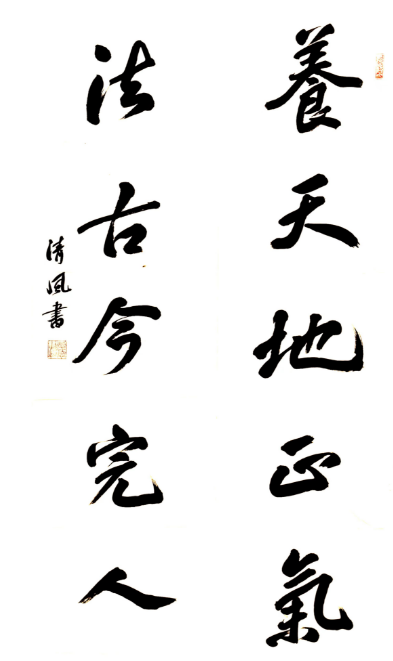 養天地正氣
法古今完人
清風書